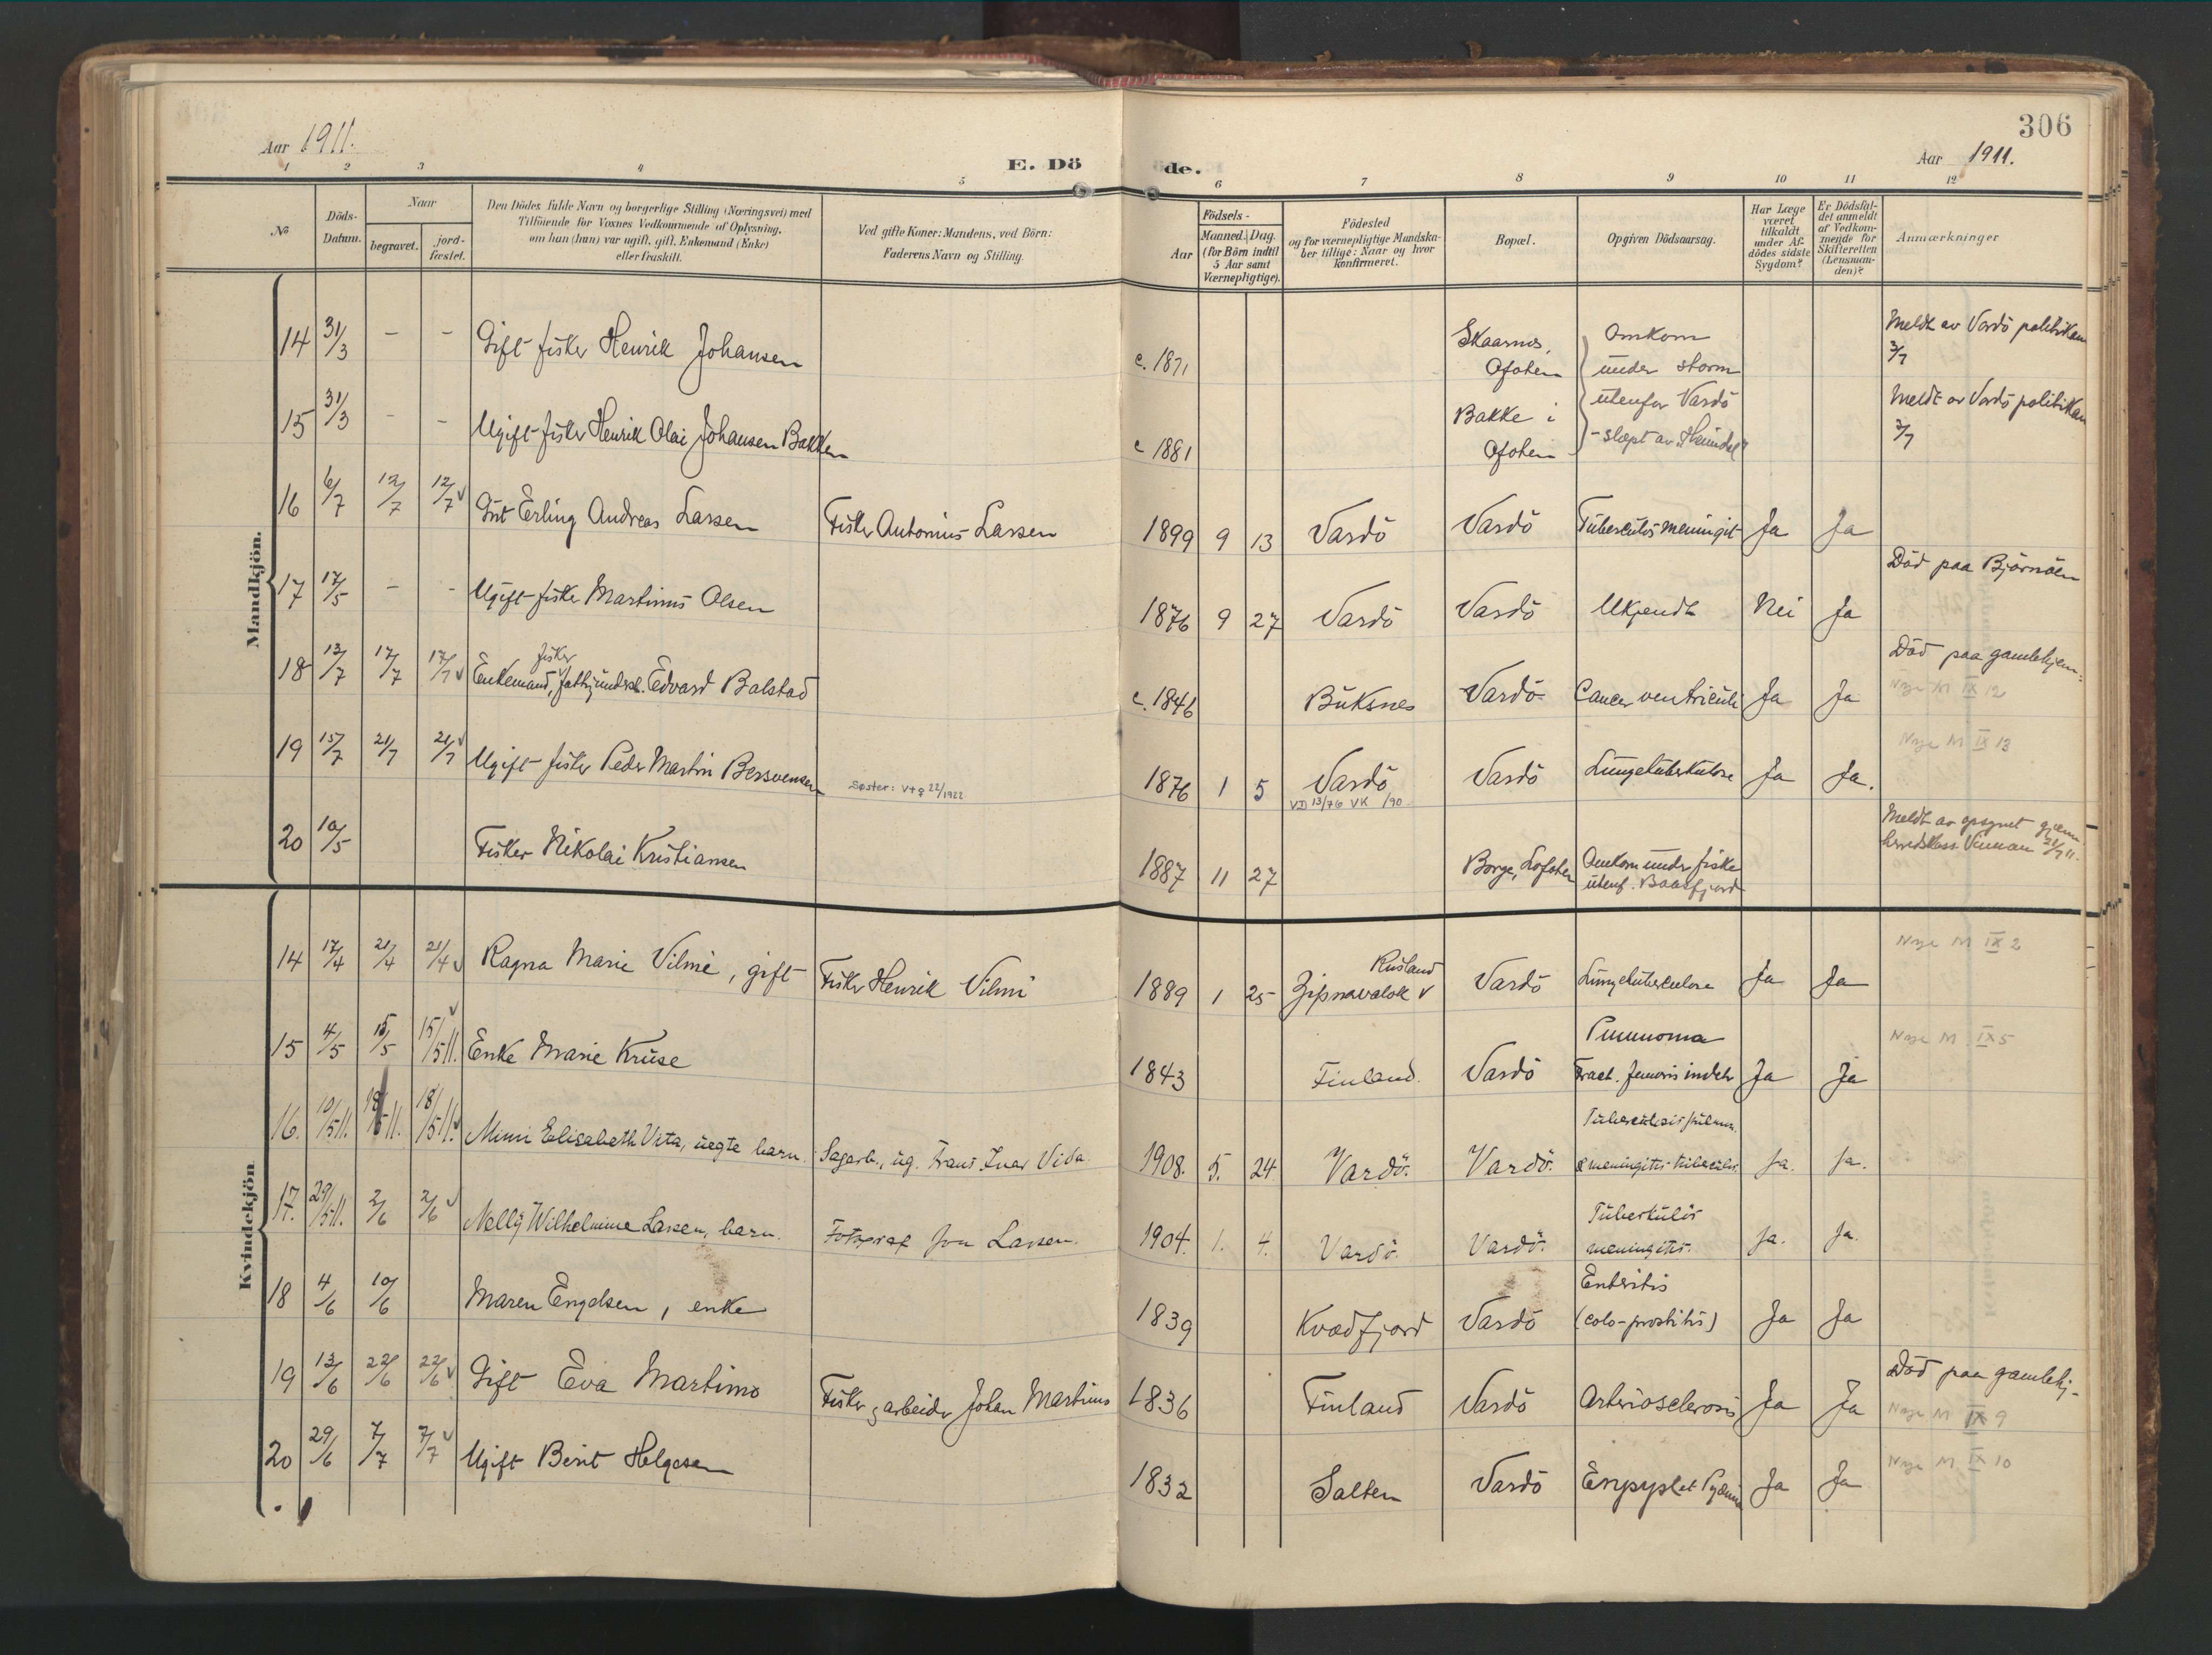 306
Aar 1911.
E. Dö de.
Aar 1911.
1 2 3 4 5 6 7 8 9 10 11 12
No
Döds-Datum.
Naar
begravet.
jord-fæstet.
Den Dödes fulde Navn og borgerlige Stilling (Næringsvei) med
Tilföiende for Voxnes Vedkommende af Oplysning,
om han (hun) var ugift, gift, Enkemand (Enke)
eller fraskilt.
Ved gifte Koner: Mandens, ved Börn:
Faderens Navn og Stilling.
Födsels-
Aar
Maaned. Dag.
(for Börn indtil
5 Aar samt
Værnepligtige).
Födested
og for værnepligtige Mandska-
ber tillige: Naar og hvor
konfirmeret.
Bopæl.
Opgiven Dödsaarsag.
Har Læge
været
tilkaldt
under Af-
dödes sidste
Sygdom?
Er Dödsfal-
det anmeldt
af Vedkom-
mende for
Skifteretten
(Lensman-
den)?
Anmærkninger
Mandkjön.
14 31/3 - - Gift fisker Henrik Johansen c. 1871 Skaarnes, Ofoten Omkom under storm Meldt av Vardö politikam 3/7
15 31/3 - - Ugift fisker Henrik Olai Johansen Bakken c 1881 Bakke i Ofoten utenfor Vardö - slept av "Heimdal" Meldt av Vardö politikam 3/7
16 6/7 12/7 12/7 v Gut Erling Andreas Larsen Fisker Antonius Larsen 1899 9 13 Vardö Vardö Tuberculös meningit Ja Ja
17 17/5 - - Ugift fisker Martinus Olsen 1876 9 27 Vardö Vardö Ukjendt Nei Ja Död paa Björnöen
18 13/7 17/7 17/7 v Enkemand, fisker, fattigunderst. Edvard Balstad c. 1846 Buksnes Vardö Cancer ventriculi Ja Ja Död paa gamlehjem.
Nye M IX 12
19 15/7 21/7 21/7 v Ugift fisker Peder Martin Bersvensen Søster: V+q 22/1922 1876 1 5 Vardö VD 13/76 VK /90 Vardö Lungetuberkulose Ja Ja.
Nye M IX 13
20 10/5 Fisker Nikolai Kristiansen 1887 11 27 Borge, Lofoten Omkom under fiske utenf. Baadsfjord Meldt av opsynet gjenn. 21/7 11.
Kvindekjön
14 17/4 21/4 21/4 v Ragna Marie Vilmi, gift Fisker Henrik Vilmi 1889 1 25 Zipnavalok v Rusland Vardö Lungetuberculose Ja Ja Nye M IX 2
15 4/5 15/5 15/5 11. v Enke Marie Kruse 1843 Finland. Vardö Pneumonia Fract. femoris indetr Ja Ja Nye M IX 5
16. 10/5 11. 18/5 11. 18/5 11. v Mimi Elisabeth Vita, uegte barn. Sagarb., ug. Frans Ivar Vida. 1908. 5. 24. Vardö. Vardö. Tuberculosis pulmon. & meningitis tuberculos. Ja. Ja.
17. 29/5 11. 2/6 2/6 v Nelly Wilhelmine Larsen, barn. Fotograf Jon Larsen. 1904. 1. 4. Vardö. Vardö. Tuberkulös meningitis. Ja. Ja.
18 4/6 10/6 Maren Engelsen, enke 1839 Kvædfjord Vardö Enteritis (colo-proktitis) Ja Ja
19 13/6 22/6 22/6 v Gift Eva Martimo Fisker, arbeider Johan Martimo 1836 Finland Vardö Arteriosclerosis Ja Ja Död paa gamlehj-
Nye M IX 9
20 29/6 7/7 7/7 v Ugift Berit Helgesen 1832 Salten Vardö Ja Ja Nye M IX 10